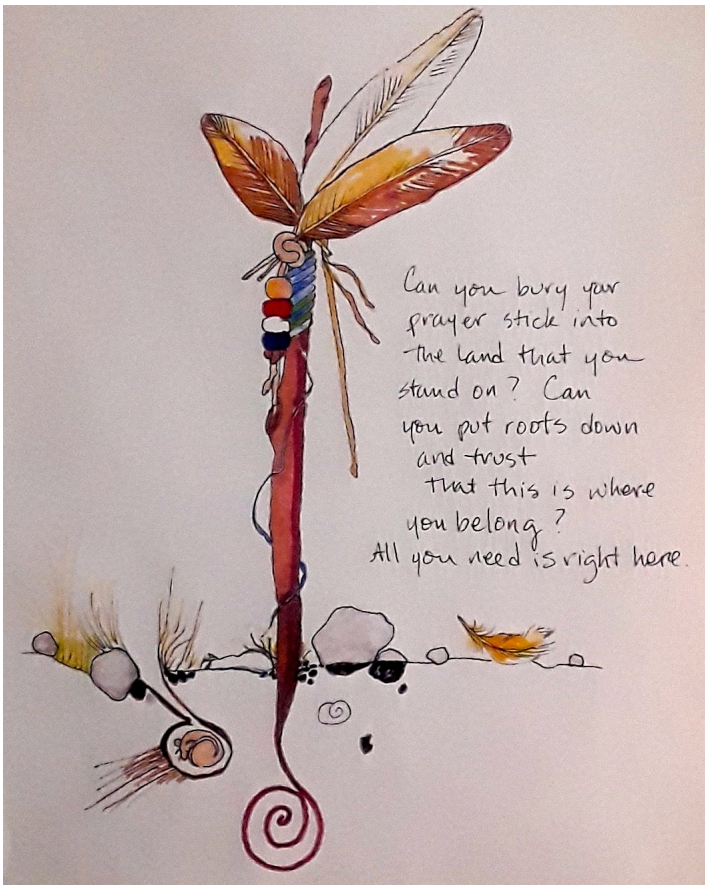 Can you bury your
prayer stick into
the land that you
stand on? Can
you put roots down
and trust
that this is where
you belong?
All you need is right here.